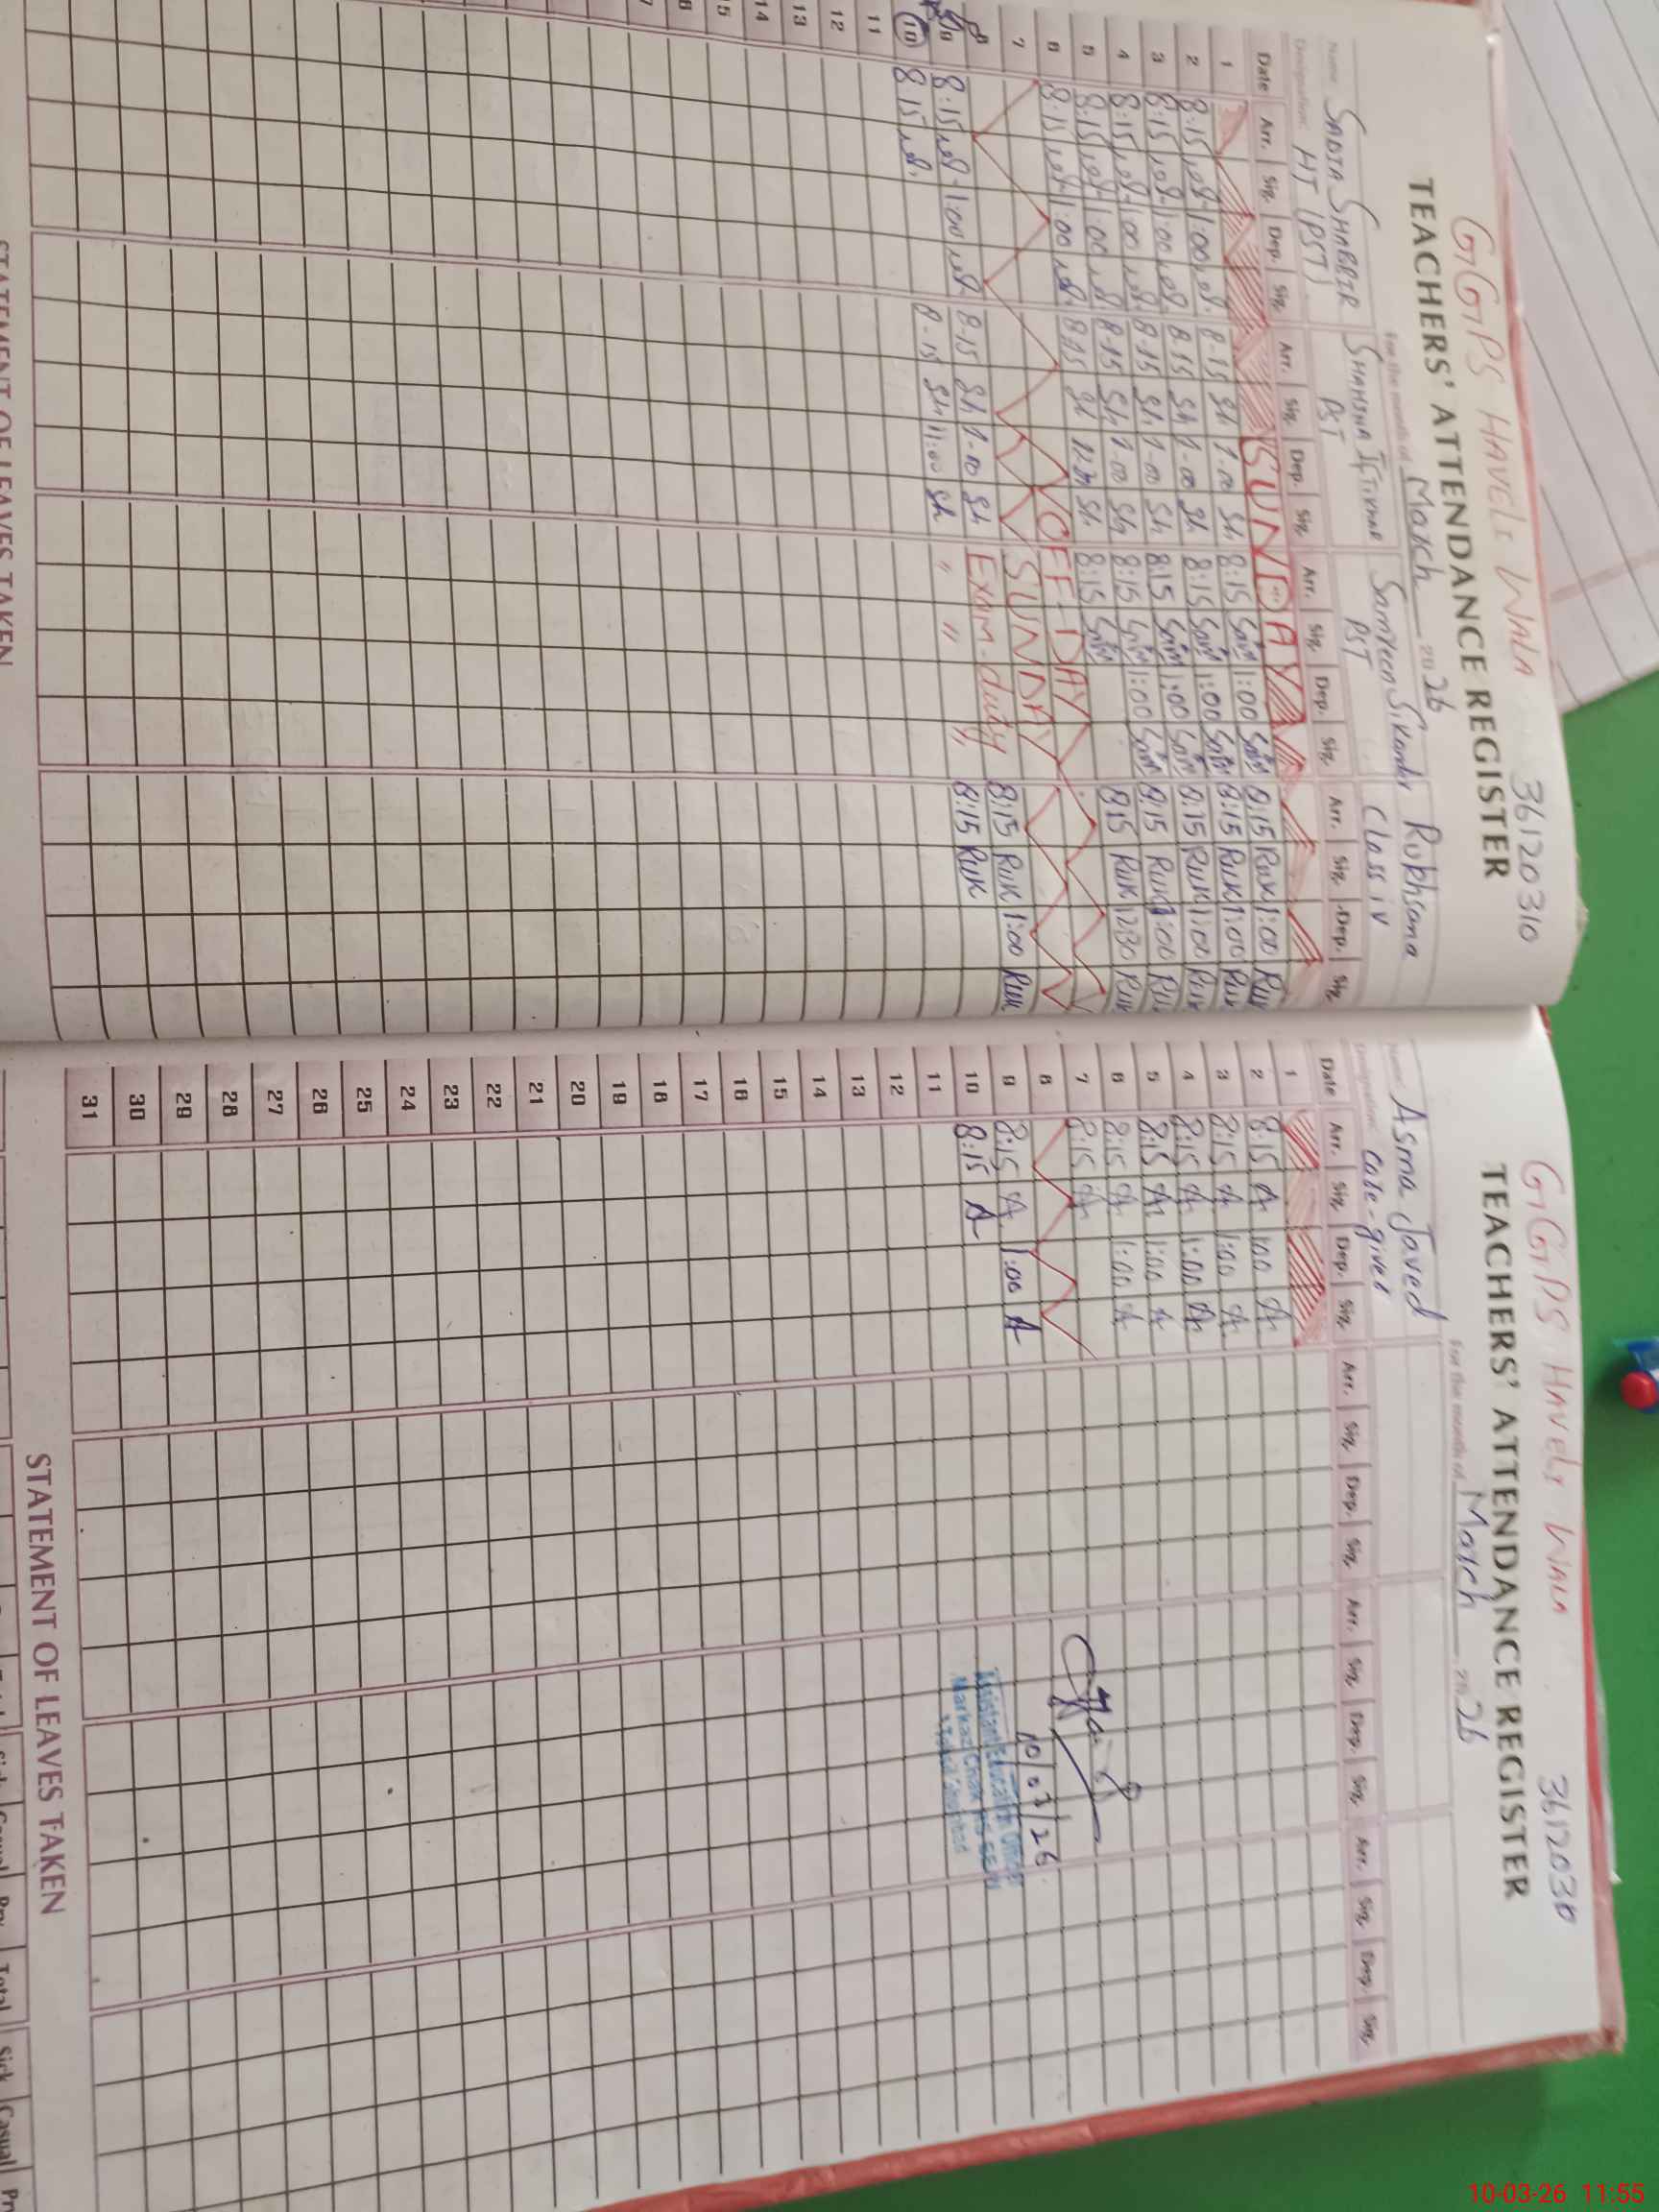 GGPS HAVELI WALA 36120310
TEACHERS' ATTENDANCE REGISTER
For the month of March 2026
Name SADIA SHABBIR SHAHINA IFTIKHAR Samreen Sikander Rukhsana
Designation: HT (PST) PST PST Class iv
Date Arr. Sig. Dep. Sig. Arr. Sig. Dep. Sig. Arr. Sig. Dep. Sig. Arr. Sig. Dep. Sig.
1 SUNDAY
2 8:15 1:00 8-15 Sh 1-00 Sh 8:15 Sam 1:00 Sam 8:15 Ruk 1:00 Ruk
3 8:15 1:00 8-15 Sh 1-00 Sh 8:15 Sam 1:00 Sam 8:15 Ruk 1:00 Ruk
4 8:15 1:00 8-15 Sh 1-00 Sh 8:15 Sam 1:00 Sam 8:15 Ruk 1:00 Ruk
5 8:15 1:00 8-15 Sh 1-00 Sh 8:15 Sam 1:00 Sam 8:15 Ruk 1:00 Ruk
6 8:15 1:00 8-15 Sh Sh 8:15 Sam 8:15 Ruk 12:30 Ruk
7 OFF-DAY
8 SUNDAY
9 8:15 1:00 8-15 Sh 1-00 Sh Exam-duty 8:15 Ruk 1:00 Ruk
10 8:15 8-15 Sh 11:00 Sh " " " 8:15 Ruk
11
12
13
14
15
STATEMENT OF LEAVES TAKEN
GGPS HAVELI WALA 36120310
TEACHERS' ATTENDANCE REGISTER
For the month of March 2026
Name Asma Javed
Designation: Care-giver
Date Arr. Sig. Dep. Sig. Arr. Sig. Dep. Sig. Arr. Sig. Dep. Sig. Arr. Sig. Dep. Sig.
1
2 8:15 A 1:00 A
3 8:15 A 1:00 A
4 8:15 A 1:00 A
5 8:15 A 1:00 A
6 8:15 A 1:00 A
7 8:15 A
8
9 8:15 A 1:00 A
10 8:15 A
10/03/26
Assistant Education Officer
Markaz Chak
11
12
13
14
15
16
17
18
19
20
21
22
23
24
25
26
27
28
29
30
31
STATEMENT OF LEAVES TAKEN
Total Sick Casual
10-03-26 11:55